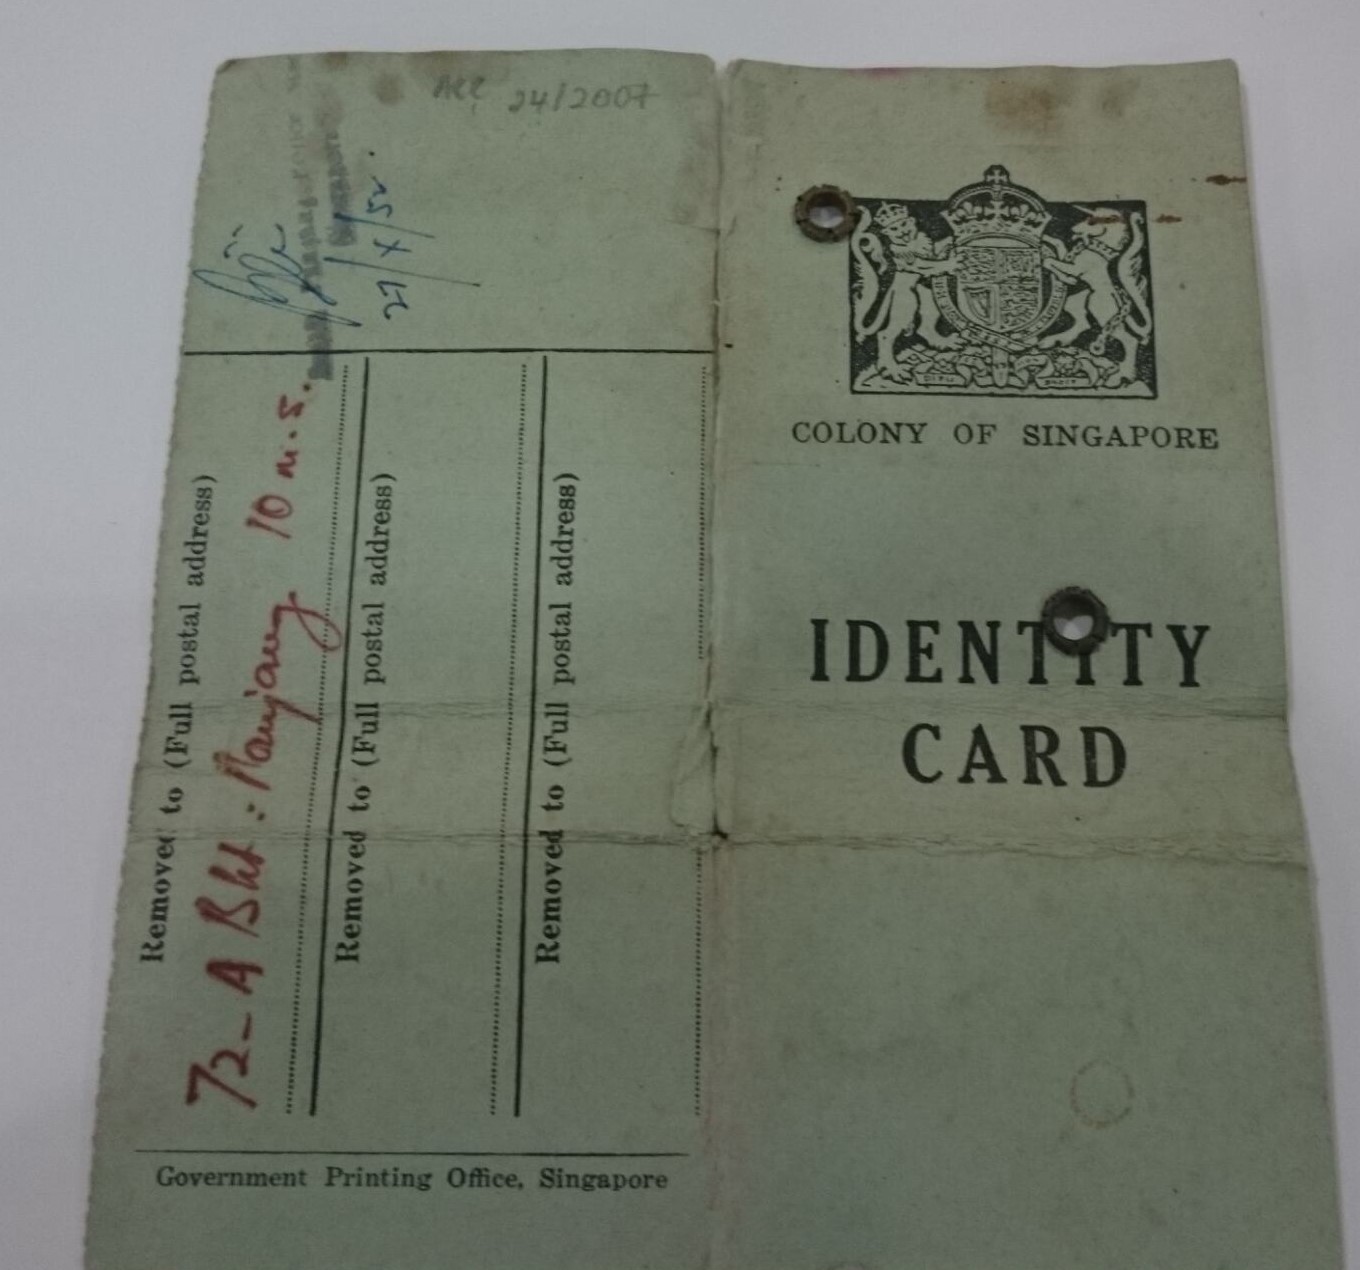 24/2007
27/4/52
Removed to (Full postal address)
72-A Bkt: Panjang 10 m.s.
Removed to (Full postal address)
Removed to (Full postal address)
Government Printing Office, Singapore
DIEU DROIT
COLONY OF SINGAPORE
IDENTITY
CARD